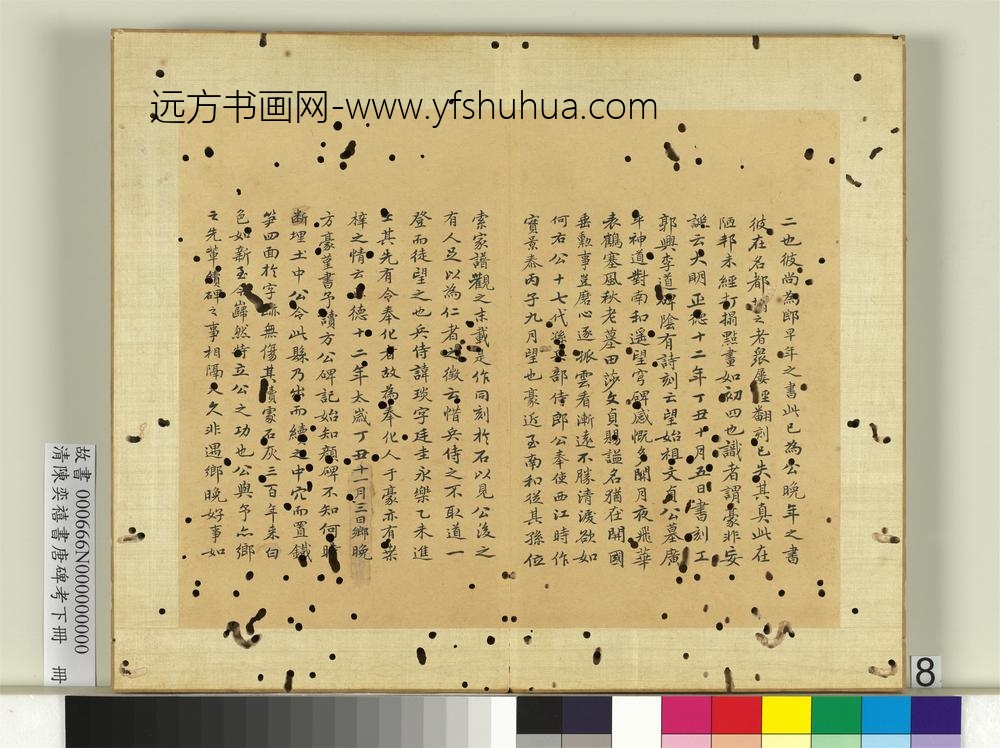 远方书画网-www.yfshuhua.com
二也彼尚為郎早年之書此已為公晚年之書
彼在名都打之者眾屢翻刻已失其真此在
陋邦未經打搨點畫如初四也識者謂豪非妄
誕云大明正德十二年丁丑十月五日書刻工
郭興李道碑陰有詩刻云望始祖文貞公墓廣
平神道對南和遥望穹碑感慨多關月夜飛華
表鶴塞風秋老墓田莎文貞賜謚名猶在開國
垂勳事豈磨心逐孤雲看漸遠不勝清淚欲如
何右公十七代孫部侍郎公奉使西江時作
實景泰丙子九月望也豪近至南和從其孫位
索家譜觀之末載是作同刻於石以見公後之
有人足以為仁者之徵云惜兵侍之不取道一
登而徒望之也兵侍諱琰字廷圭永樂乙未進
士其先有令奉化者故為奉化人于豪亦有桑
梓之情云正德十二年太歲丁丑十一月三日鄉晚
方豪謹書予讀方公碑記始知顏碑不知何時
斷埋土中公令此縣乃出而續之中穴而置鐵
笋四面於字跡無傷其漬處石灰三百年來白
色如新至今巋然特立公之功也公與予亦鄉
之先輩續碑之事相隔久久非遇鄉晚好事如
8
故書000666N000000000
清陳奕禧書唐碑考下冊 冊